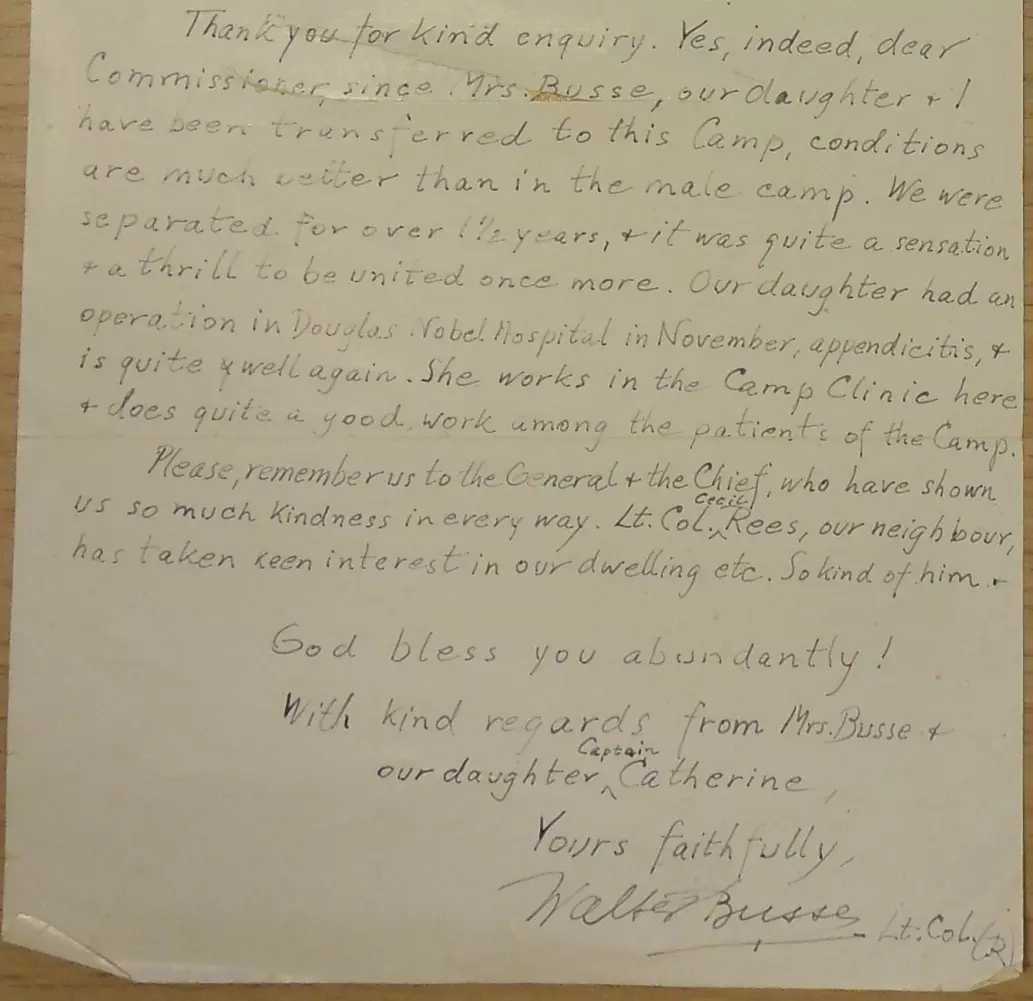 Thank you for kind enquiry. Yes, indeed, dear
Commissioner, since Mrs. Busse, our daughter + I
have been transferred to this Camp, conditions
are much better than in the male camp. We were
separated for over 1½ years, + it was quite a sensation
+ a thrill to be united once more. Our daughter had an
operation in Douglas Nobel Hospital in November, appendicitis, +
is quite well again. She works in the Camp Clinic here
+ does quite a good work among the patients of the Camp.
Please, remember us to the General + the Chief, who have shown
us so much kindness in every way. Lt. Col. Cecil Rees, our neighbour,
has taken keen interest in our dwelling etc. So kind of him.
God bless you abundantly!
With kind regards from Mrs. Busse +
our daughter, Captain Catherine,
Yours faithfully,
Walter Busse Lt. Col. (R)